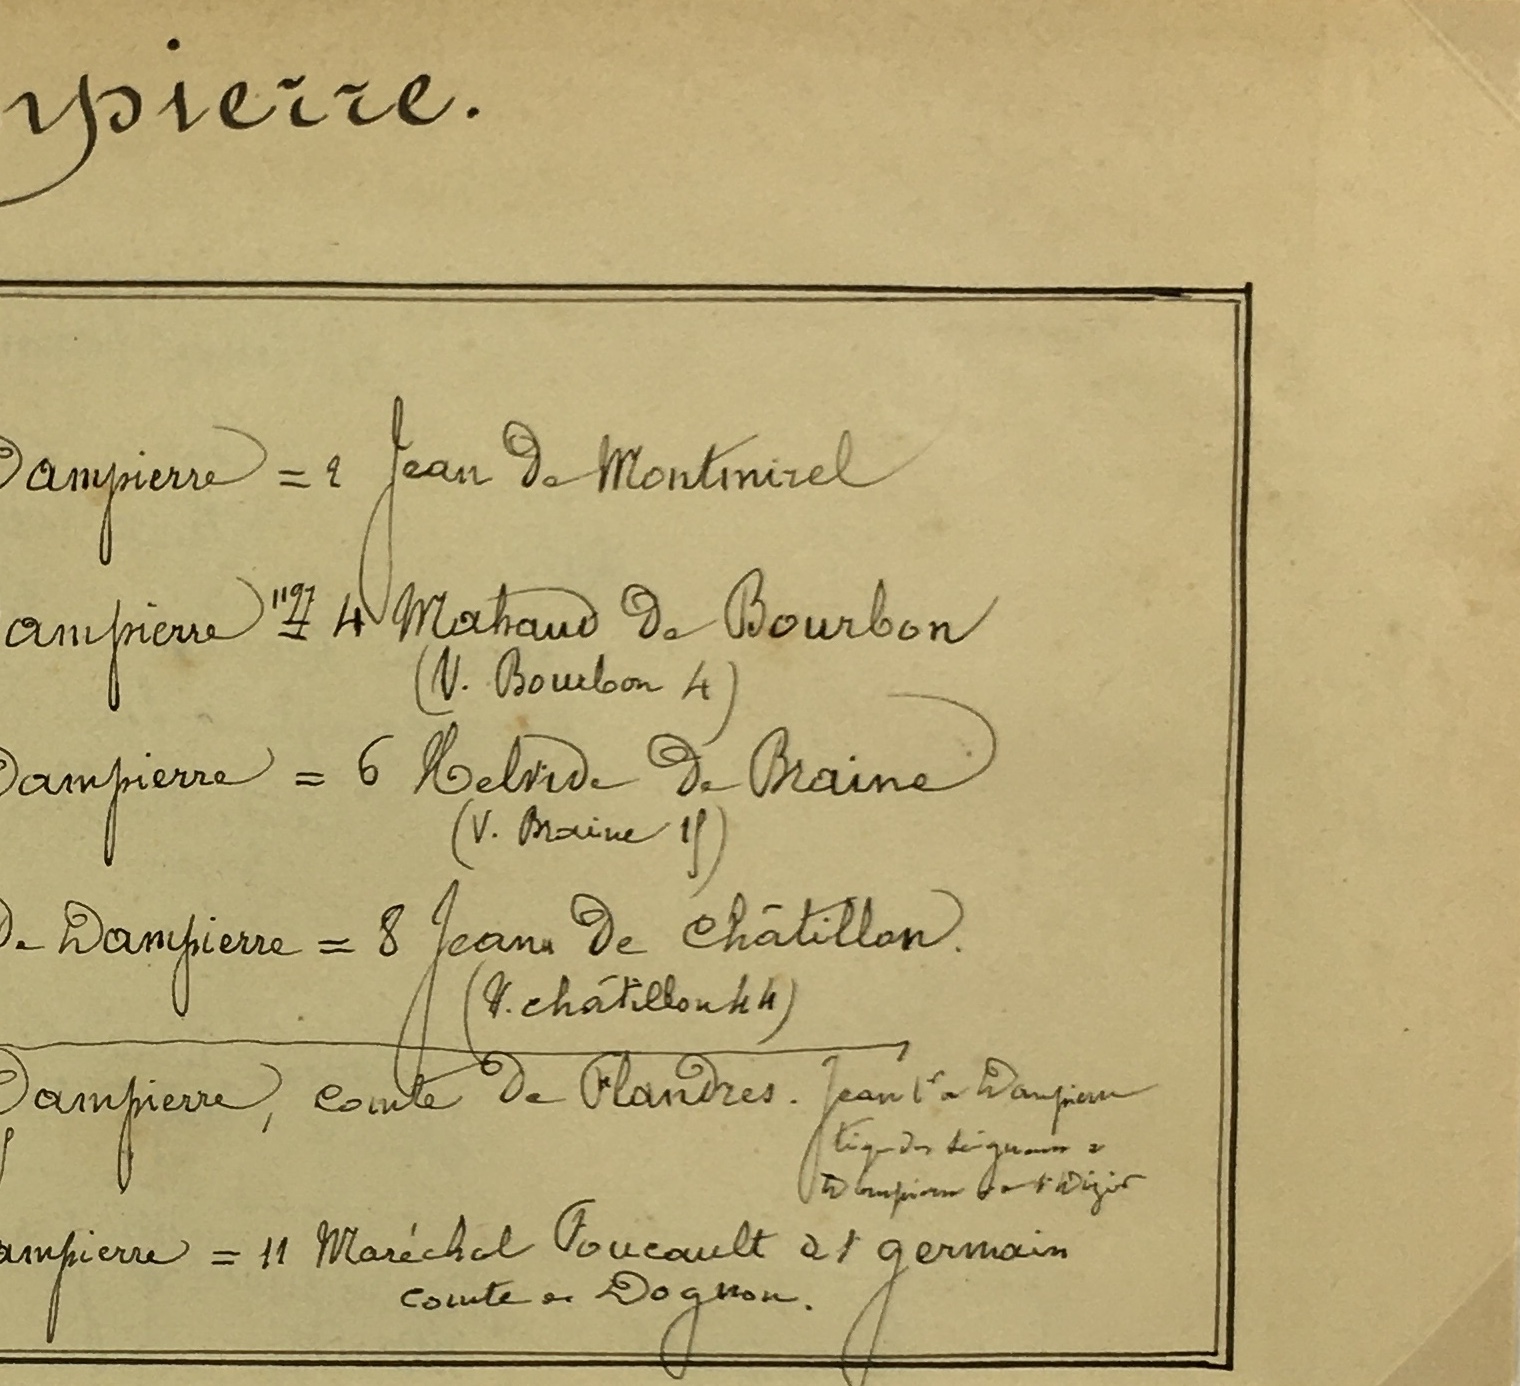 mpierre.
Dampierre = 2 Jean De Montmirel
ampierre 1197 = 4 Mahaud De Bourbon
(V. Bourbon 4)
Dampierre = 6 Helvide De Braine
(V. Braine 15)
De Dampierre = 8 Jeanne De Châtillon.
(V. châtillon 44)
Dampierre, comte De Flandres. Jean 1er de Dampierre
tige des seigneurs de
Dampierre de St Dizier
ampierre = 11 Maréchal Foucault de St germain
comte de Dognon.